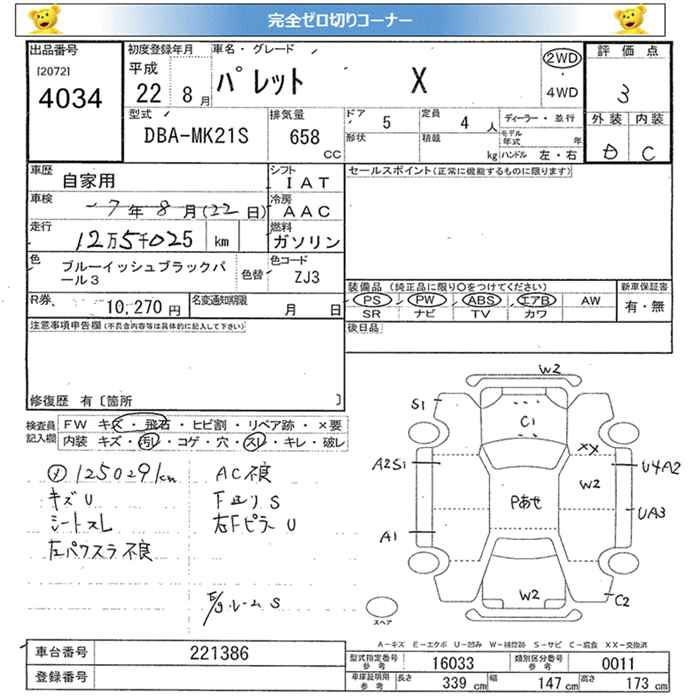 完全ゼロ切りコーナー
出品番号 初度登録年月 車名・グレード 評価点
[2072] 平成 パレット X 2WD 3
4034 22 8月 4WD
型式 排気量 ドア 定員 ディーラー・並行 外装 内装
DBA-MK21S 658 CC 5 4人 モデル年式 年 D C
形状 積載 kg ハンドル 左・右
車歴 自家用 シフト IAT セールスポイント(正常に機能するものに限ります)
車検 7年8月(22日) 冷房 AAC
走行 12万5千025 km 燃料 ガソリン
色 ブルーイッシュブラックパール3 色替 色コード ZJ3
装備品 (純正品に限り○をつけてください) 新車保証書
R券 10,270円 名変通知期限 月 日 PS PW ABS エアB AW 有・無
SR ナビ TV カワ
注意事項申告欄(不具合内容等は具体的に記入して下さい) 後日品
修復歴 有〔箇所 〕
検査員記入欄 FW キズ・飛石・ヒビ割・リペア跡・×要
内装 キズ・汚レ・コゲ・穴・スレ・キレ・破レ
メ 125029km AC不良
キズU 下廻りS
シートスレ 右FピラーU
左パワスラ不良
E/gルームS
W2
S1 C1
XX
A2S1 W2 U4A2
Pあせ
A1 UA3
W2 C2
スペア
A-キズ E-エクボ U-凹み W-補修跡 S-サビ C-腐食 XX-交換済
車台番号 221386 型式指定番号 参考 16033 類別区分番号 参考 0011
登録番号 車庫証明用 参考 長さ 339cm 幅 147cm 高さ 173cm